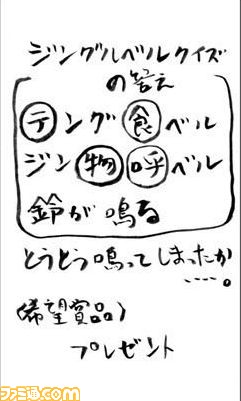 ジングルベルクイズ
の答え
テング食ベル
ジン物呼ベル
鈴が鳴る
とうとう鳴ってしまったか
……。
(希望賞品)
プレゼント
ファミ通.com